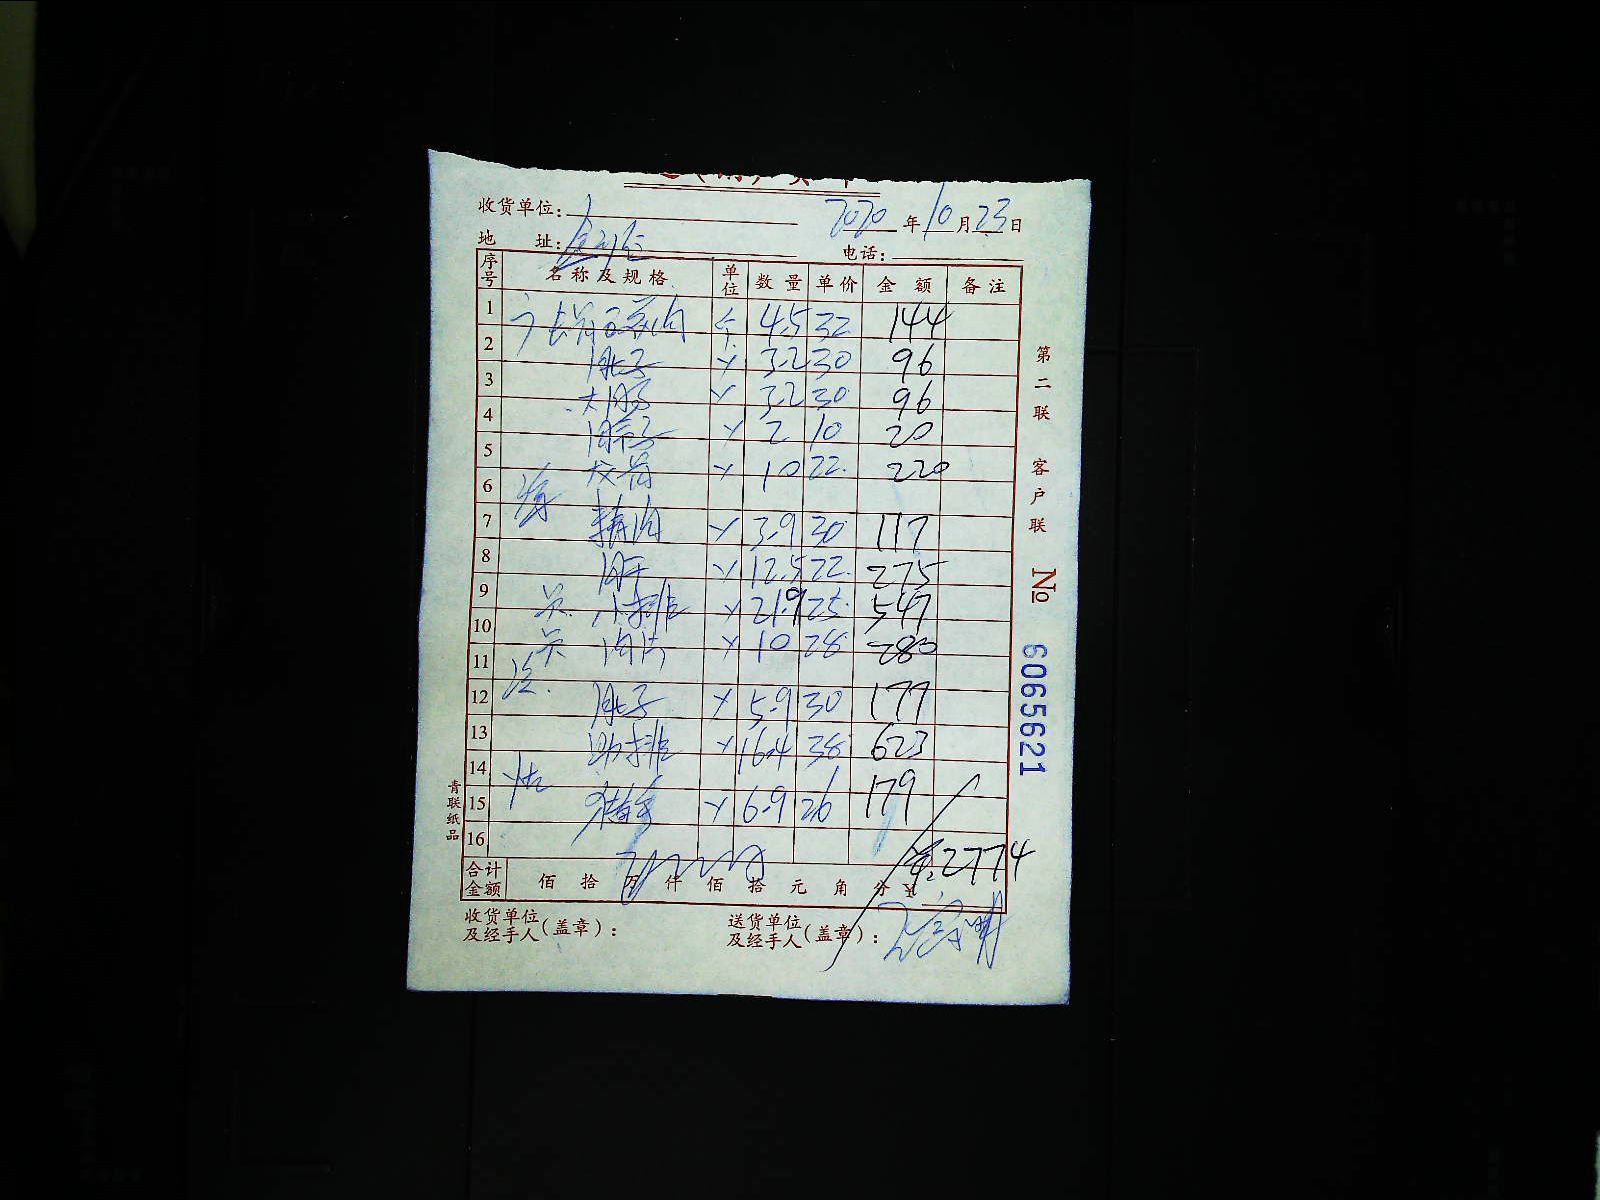 收货单位: 2020 年 10 月 23 日
地 址: 电话:
序号 名称及规格 单位 数量 单价 金额 备注
1 去骨五花肉 斤 4.5 32 144
2 肚子 3.2 30 96
3 大肠 3.2 30 96
4 2 10 20
5 龙骨 10 22 220
6
7 精肉 3.9 30 117
8 肝 12.5 22 275
9 小排 21.9 25 547
10 肉片 10 28 280
11
12 肚子 5.9 30 177
13 肋排 16.4 38 623
14
15 猪手 6.9 26 179
16 2774
合计金额 佰 拾 万 仟 佰 拾 元 角 分 ¥
收货单位及经手人(盖章): 送货单位及经手人(盖章):
第二联 客户联
No 6065621
青联纸品